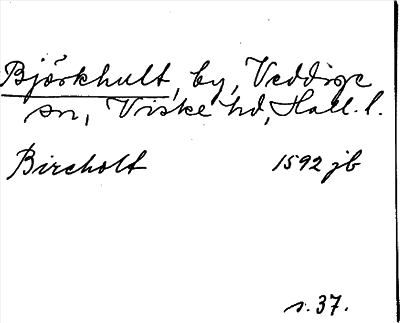 Björkhult, by, Veddige
sn, Viske hd, Hall. l.
Bircholt 1592 jb
s. 37.